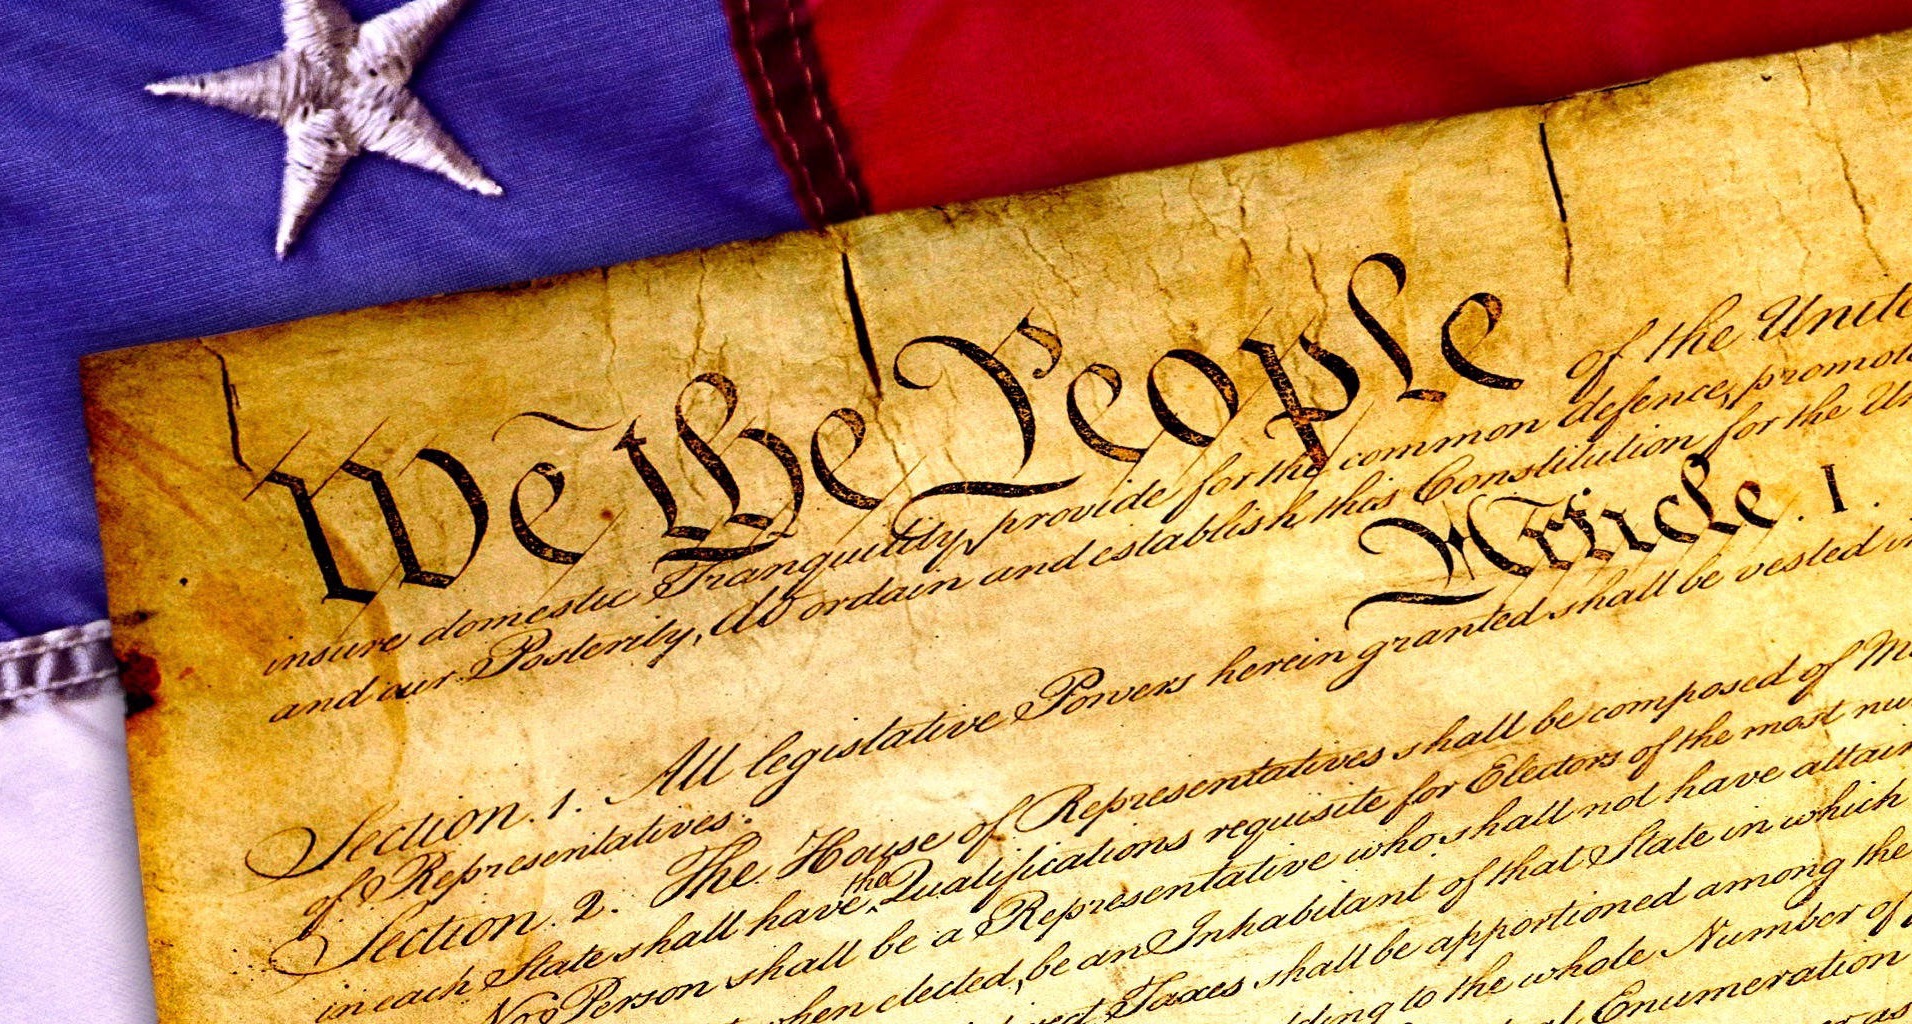 We the People of the Unite
insure domestic Tranquility, provide for the common defence, promote
and our Posterity, do ordain and establish this Constitution for the Un
Article. I.
Section. 1. All legislative Powers herein granted shall be vested in
of Representatives.
Section. 2. The House of Representatives shall be composed of M
in each State shall have the Qualifications requisite for Electors of the most nu
No Person shall be a Representative who shall not have attain
when elected, be an Inhabitant of that State in which
Taxes shall be apportioned among the
to the whole Number of
Enumeration